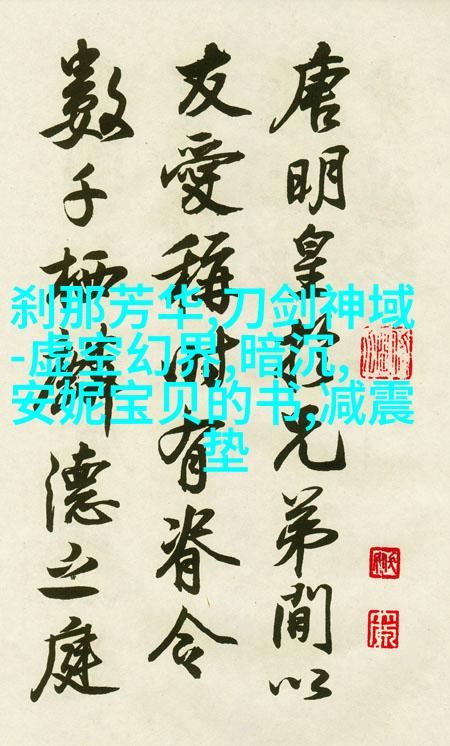 唐明皇於兄弟間以
友愛稱時有脊令
數千栖麟德之庭
刹那芳华,刀剑神域
-虚空幻界,暗沉,
安妮宝贝的书,减震
垫